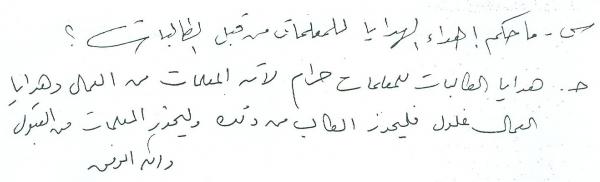 س - ما حكم إهداء الهدايا للمعلمات من قبل الطالبات ؟
ج. هدايا الطالبات للمعلمات حرام لأن المعلمات من العمال وهدايا
العمال غلول فليحذر الطالب من ذلك وليحذر المعلمات من القبول
والله الموفق